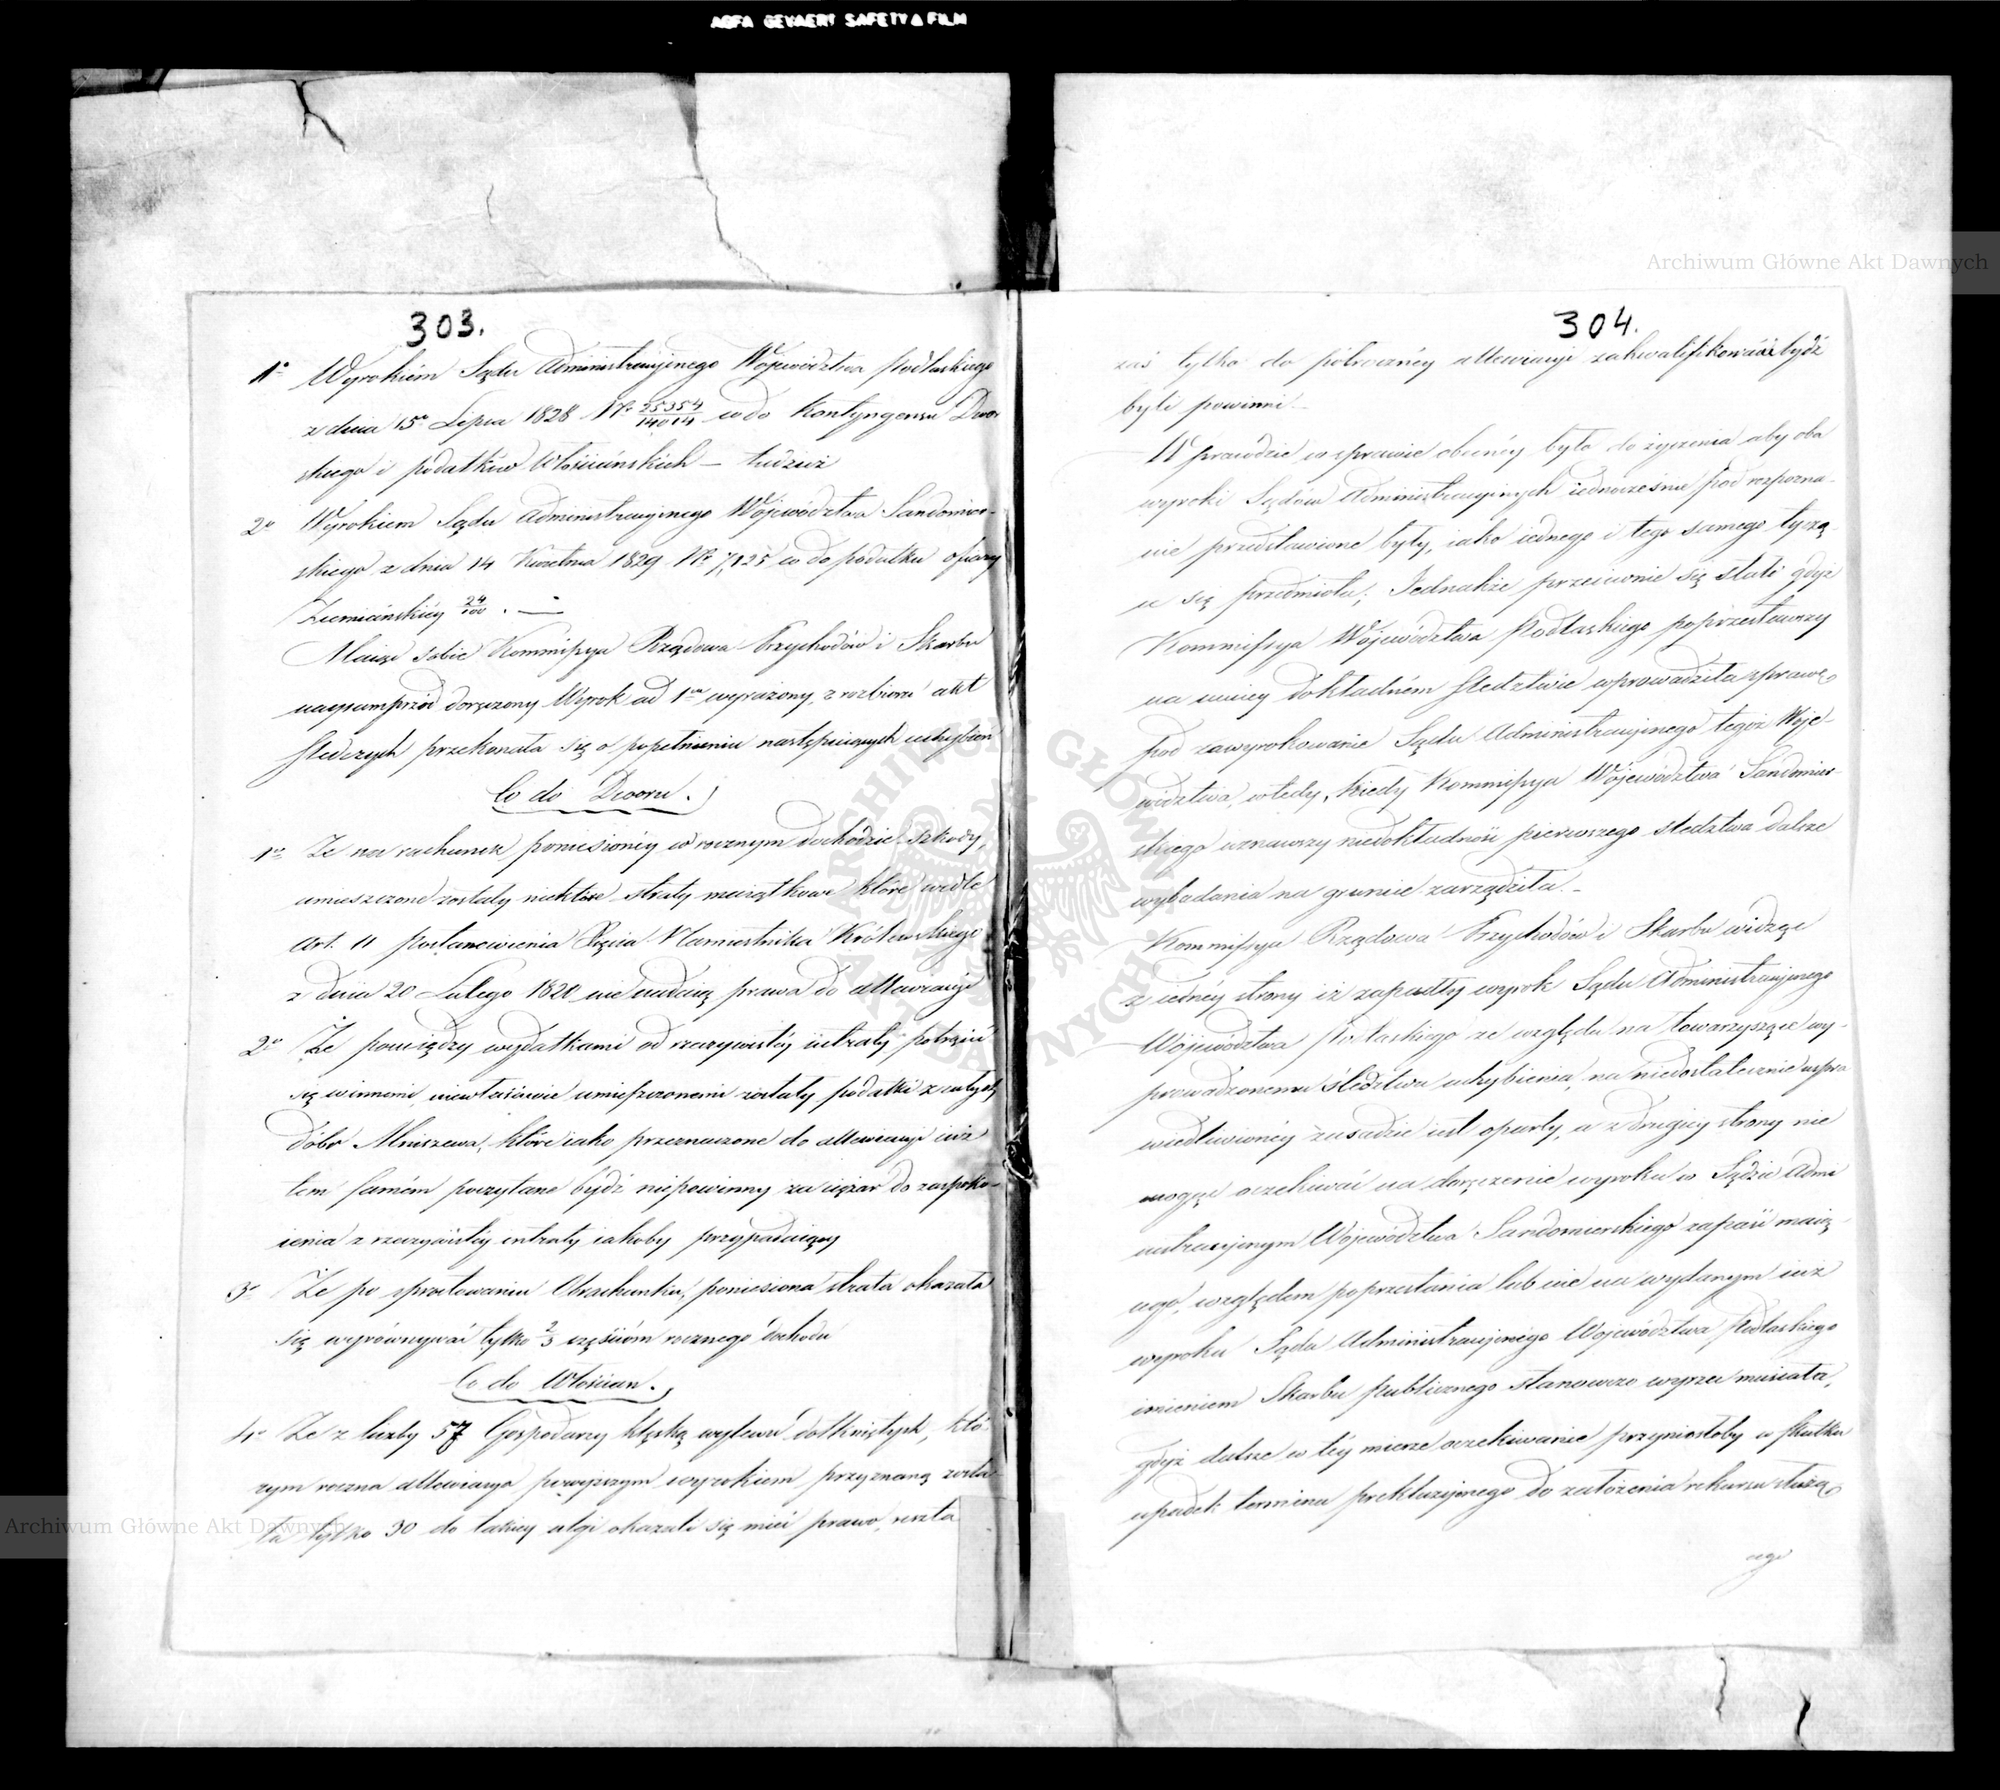 AGFA GEVAERT SAFETY FILM
303.
1o Wyrokiem Sądu Administracyjnego Województwa Podlaskiego
z dnia 15o Lipca 1828 No 25354/14014 co do Kontyngensu Dwor
skiego i podatków Włościańskich — tudzież
2o Wyrokiem Sądu Administracyjnego Województwa Sandomier-
skiego z dnia 14 Kwietnia 1829 No 7,125 co do podatku ofiary
Ziemiańskiéy 24/100. —
Maiąc sobie Kommissya Rządowa Przychodów i Skarbu
nayprzód doręczony Wyrok ad 1um wyrażony, z rozbioru akt
śledczych przekonała się o popełnieniu następuiących uchybień
Co do Dworu.
1o Że na rachunek poniesionéy w rocznym dochodzie szkody,
umieszczone zostały niektóre straty maiątkowe które wedle
Art. 11 postanowienia Xięcia Namiestnika Królewskiego
z dnia 20 Lutego 1820 nie nadaią prawa do allewiacyi
2o Że pomiędzy wydatkami od rzeczywistéy intraty potrącić
się winnemi, niewłaściwie umieszczonemi zostały podatki z całych
dóbr Mniszewa, które iako przeznaczone do allewiacyi iuż
tem samém poczytane bydź niepowinny za ciężar do zaspoko-
ienia z rzeczywistéy intraty iakoby przypadaiący
3o Że po sprostowaniu Obrachunku, poniesiona strata okazała
się wyrównywać tylko 2/3 częściom rocznego dochodu
Co do Włościan.
4o Że z liczby 57 Gospodarzy klęską wylewu dotkniętych, któ-
rym roczna allewiacya powyższym wyrokiem przyznaną zosta
ła tylko 30 do takiey ulgi okazali się mieć prawo, reszta
304.
zaś tylko do półrocznéy allewiacyi zakwalifikowani bydź
byli powinni. —
W prawdzie w sprawie obecnéy było do życzenia aby oba
wyroki Sądów Administracyinych iednocześnie pod rozpozna-
nie przedstawione były, iako iednego i tego samego tyczą-
ce się przedmiotu; Jednakże przeciwnie się stało gdyż
Kommissya Województwa Podlaskiego poprzestawszy
na mniey dokładném śledztwie wprowadziła sprawę
pod zawyrokowanie Sądu Administracyinego tegoż Woje-
wództwa, wtedy, kiedy Kommissya Województwa Sandomier-
skiego uznawszy niedokładność pierwszego śledztwa dalsze
wybadania na gruncie zarządziła. —
Kommissya Rządowa Przychodów i Skarbu widząc
z iednéy strony iż zapadły wyrok Sądu Administracyjnego
Województwa Podlaskiego ze względu na towarzyszące wy-
prowadzonemu śledztwu uchybienia, na niedostatecznie uspra
wiedliwionéy zasadzie iest oparty, a z drugiey strony nie
mogąc oczekiwać na doręczenie wyroku w Sądzie Admi
nistracyjnym Województwa Sandomierskiego zapaść maią-
cego, względem poprzestania lub nie na wydanym iuż
wyroku Sądu Administracyjnégo Województwa Podlaskiego
imieniem Skarbu Publicznego stanowczo wyrzec musiała,
gdyż dalsze w téy mierze oczekiwanie przyniosłoby w skutku
upadek terminu prekluzyjnego do założenia rekursu służą
cego
Archiwum Główne Akt Dawnych
Archiwum Główne Akt Dawnych
ARCHIWUM GŁÓWNE AKT DAWNYCH